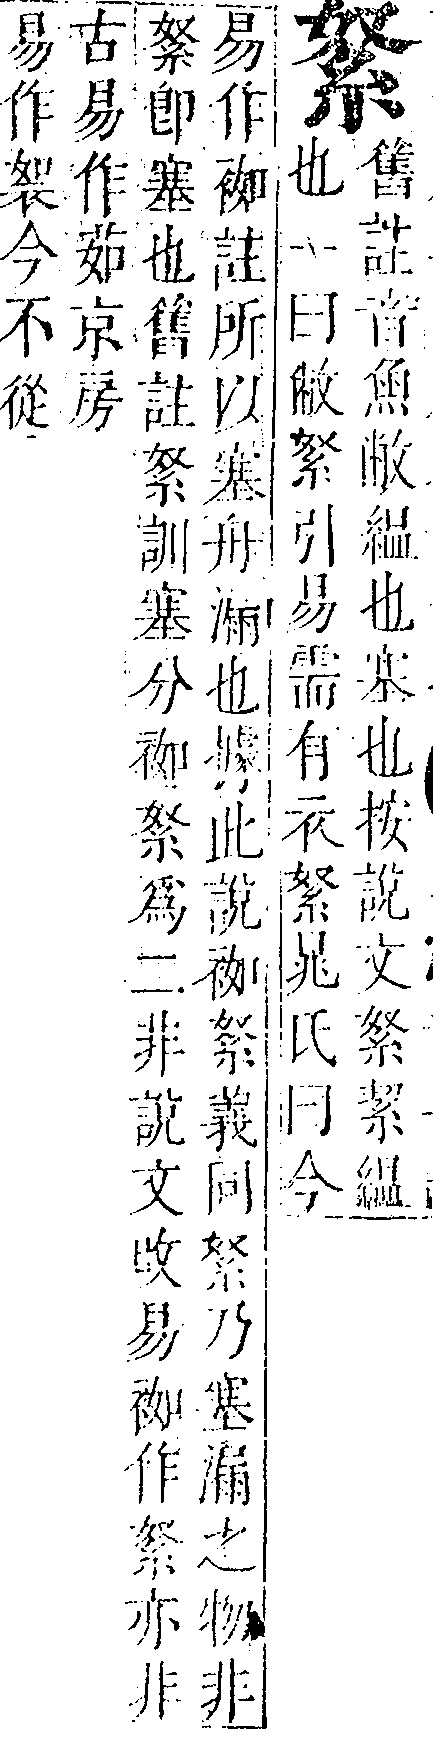 絮
舊註音魚敝緼也塞也按說文絮絜緼
也一曰敝絮引易需有衣絮晁氏曰今
易作袽註所以塞舟漏也據此說袽絮義同絮乃塞漏之物非
絮卽塞也舊註絮訓塞分袽絮爲二非說文收易袽作絮亦非
古易作茹京房
易作袈今不從